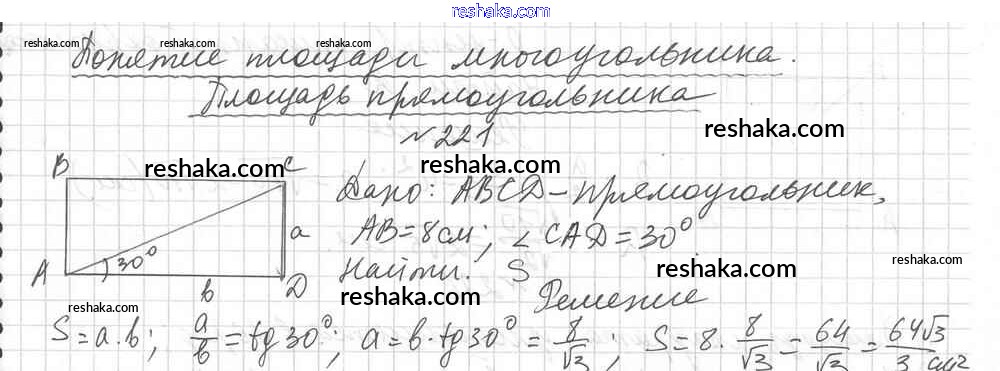 reshaka.com
reshaka.com reshaka.com reshaka.com reshaka.com
Понятие площади многоугольника.
Площадь прямоугольника
№ 221 reshaka.com
reshaka.com
B reshaka.com C Дано: ABCD – прямоугольник,
a AB = 8 см; ∠ CAD = 30°
A 30° Найти: S reshaka.com
b D reshaka.com Решение
reshaka.com reshaka.com
S = a·b; a/b = tg 30°; a = b·tg 30° = 8/√3; S = 8· 8/√3 = 64/√3 = 64√3/3 см²